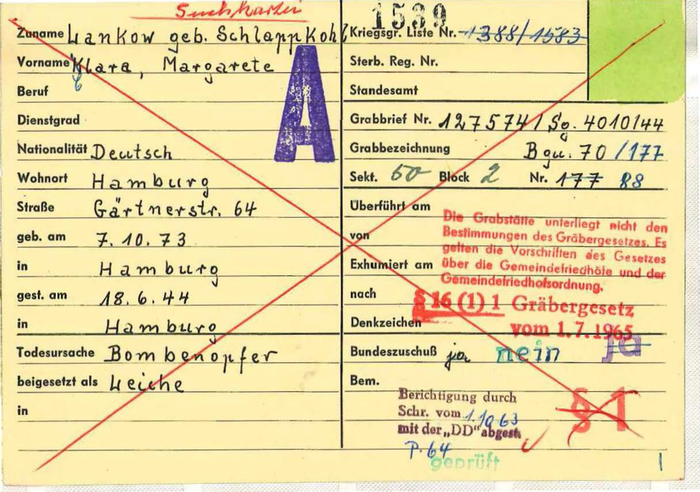 Suchkartei
1539
Zuname Lankow geb. Schlappkohl
Vorname Klara, Margarete
Beruf
Dienstgrad
Nationalität Deutsch
Wohnort Hamburg
Straße Gärtnerstr. 64
geb. am 7.10.73
in Hamburg
gest. am 18.6.44
in Hamburg
Todesursache Bombenopfer
beigesetzt als Leiche
in
A
Kriegsgr. Liste Nr. 1388/1583
Sterb. Reg. Nr.
Standesamt
Grabbrief Nr. 1275741/Sg. 4010/44
Grabbezeichnung Bgu. 70/177
Sekt. 60 Block 2 Nr. 177 88
Überführt am
von
Exhumiert am
nach
Denkzeichen
Die Grabstätte unterliegt nicht den
Bestimmungen des Gräbergesetzes. Es
gelten die Vorschriften des Gesetzes
über die Gemeindefriedhöfe und der
Gemeindefriedhofsordnung.
§ 16 (1) 1 Gräbergesetz
vom 1.7.1965
Bundeszuschuß ja nein ja
Bem.
Berichtigung durch
Schr. vom 1.10.63
mit der „DD" abgest.
P. 64
geprüft
§ 1